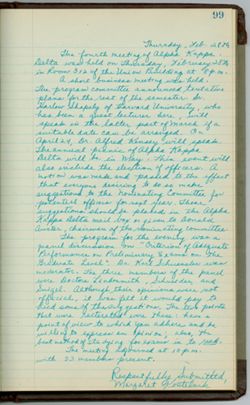 99
Thursday, Feb. 28th
The fourth meeting of Alpha Kappa
Delta was held on Thursday, February 28th
in Room 312 of the Union Building at 8 p.m.
A short business meeting was held.
The program committee announced tentative
plans for the rest of the semester. Dr.
Harlow Shapley of Harvard University, who
has been a guest lecturer here, will
speak in the latter part of March if a
suitable date can be arranged. On
April 2, Dr. Alfred Kinsey will speak.
The annual picnic of Alpha Kappa
Delta will be in May. This event will
also include the election of officers. A
motion was made and passed to the effect
that everyone desiring to do so make
suggestions to the Nominating Committee for
potential officers for next year. These
suggestions should be placed in the Alpha
Kappa Delta mail box or given to Donald
chairman of the nominating committee.
The program for the evening was a
panel discussion on "Criterion of Adequate
Performance on Preliminary Exams on The
Graduate Level." Dr. was
moderator. The three members of the panel
were Doctors Lindesmith, Schuessler, and
Although their opinions were not
official, it was felt it would pay to
heed some of their opinions. The key points
that were reiterated were these: have a
point of view to which you adhere and be
willing to express on and know; also, the
best method of studying for exams is to
The meeting adjourned at 10 p.m.
with 33 members present.
Respectfully Submitted,
Margaret